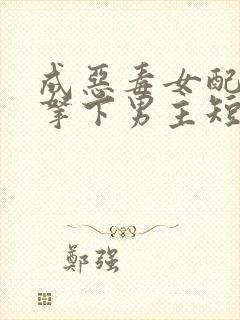 成惡毒女配
拏下男主短
鄭强